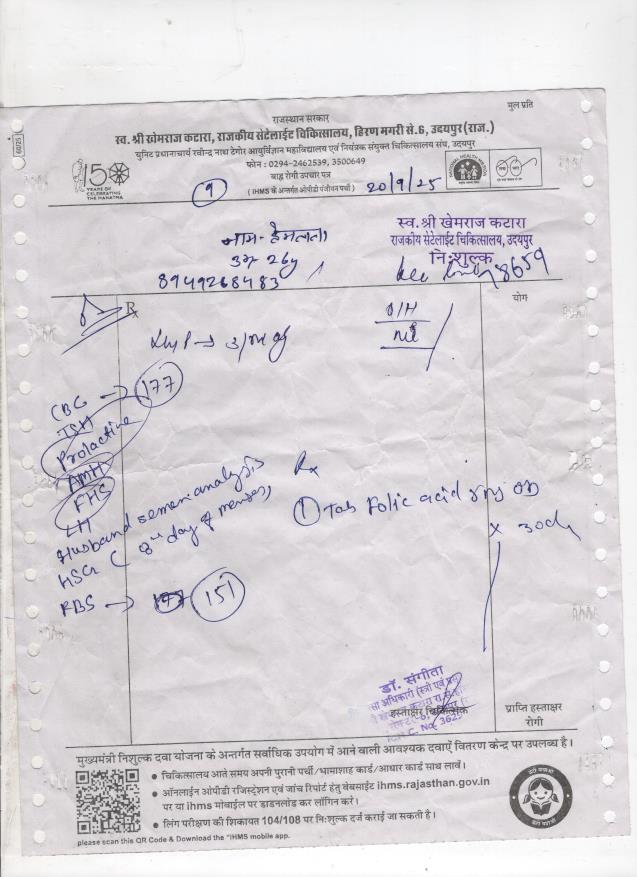 मुल प्रति
राजस्थान सरकार
स्व. श्री खेमराज कटारा, राजकीय सेटेलाईट चिकित्सालय, हिरण मगरी से.6, उदयपुर (राज.)
युनिट प्रधानाचार्य रवीन्द्र नाथ टेगोर आयुर्विज्ञान महाविद्यालय एवं नियंत्रक संयुक्त चिकित्सालय संघ, उदयपुर
फोन : 0294-2462539, 3500649
बाह्य रोगी उपचार पत्र
( IHMS के अन्तर्गत ओपीडी पंजीयन पर्ची )
20/9/25
150
YEARS OF
CELEBRATING
THE MAHATMA
9
स्व. श्री खेमराज कटारा
राजकीय सेटेलाईट चिकित्सालय, उदयपुर
निःशुल्क
8659
नाम- हेमलता
उम्र 26y
8949268483
Rx
योग
O/H
Nil
LMP → 3/
CBC → 177
TSH
Prolactine
AMH
FHS
LH
Husband semen analysis
HSG ( 8th day of menses)
RBS → 151
Rx
① Tab Folic acid 5mg OD
x 30
डॉ. संगीता
हस्ताक्षर चिकित्सक
प्राप्ति हस्ताक्षर
रोगी
मुख्यमंत्री निशुल्क दवा योजना के अन्तर्गत सर्वाधिक उपयोग में आने वाली आवश्यक दवाऐं वितरण केन्द्र पर उपलब्ध है।
• चिकित्सालय आते समय अपनी पुरानी पर्ची/भामाशाह कार्ड/आधार कार्ड साथ लावें।
• ऑनलाईन ओपीडी रजिस्ट्रेशन एवं जांच रिपोर्ट हेतु वेबसाईट ihms.rajasthan.gov.in
पर या ihms मोबाईल पर डाउनलोड कर लॉगिन करे।
• लिंग परीक्षण की शिकायत 104/108 पर निःशुल्क दर्ज कराई जा सकती है।
please scan this QR Code & Download the "IHMS mobile app.